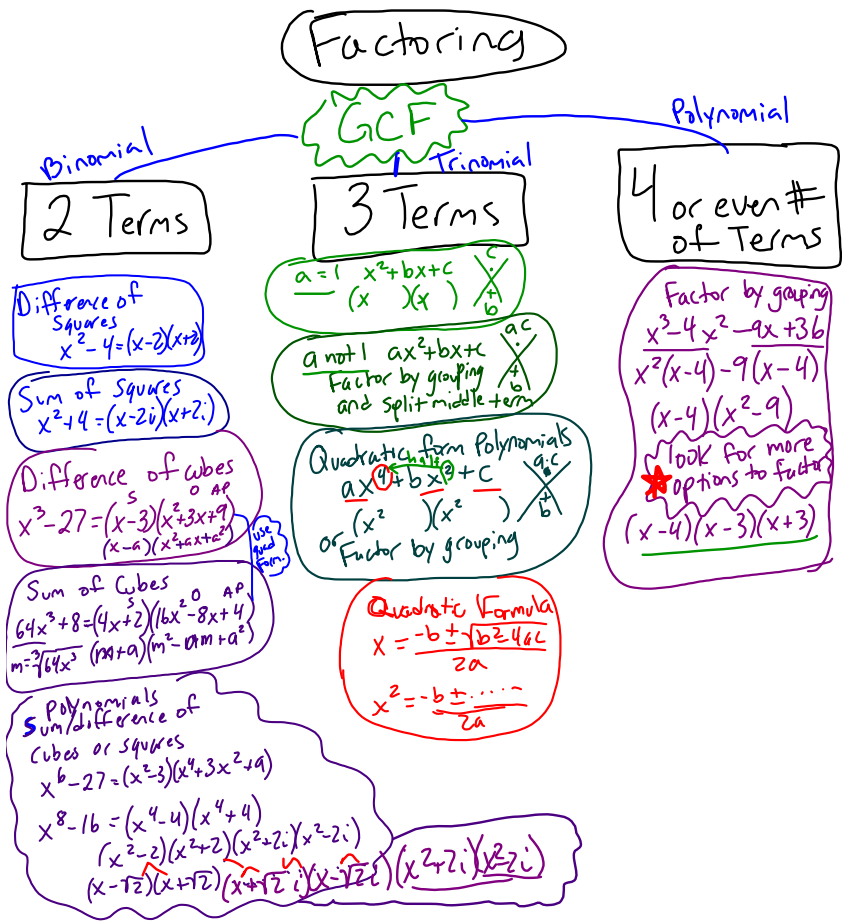 Factoring
GCF
Binomial
Trinomial
Polynomial
2 Terms
3 Terms
4 or even #
of Terms
Difference of
Squares
x² - 4 = (x-2)(x+2)
Sum of Squares
x² + 4 = (x-2i)(x+2i)
Difference of cubes
S O AP
x³ - 27 = (x-3)(x²+3x+9)
(x-a)(x²+ax+a²)
use
quad
form.
Sum of Cubes
S O AP
64x³ + 8 = (4x+2)(16x²-8x+4)
m = ³√64x³ (m+a)(m²-am+a²)
Polynomials
Sum/difference of
cubes or squares
x⁶ - 27 = (x²-3)(x⁴+3x²+9)
x⁸ - 16 = (x⁴-4)(x⁴+4)
(x²-2)(x²+2)(x²+2i)(x²-2i)
(x-√2)(x+√2)(x+√2 i)(x-√2 i)(x²+2i)(x²-2i)
a = 1 x² + bx + c
(x )(x )
c
+
b
a not 1 ax² + bx + c
Factor by grouping
and split middle term
ac
+
b
Quadratic form Polynomials
half
ax⁴ + bx² + c
(x² )(x² )
or Factor by grouping
a·c
+
b
Quadratic Formula
x = -b ± √b² - 4ac
2a
x² = -b ± ......
2a
Factor by grouping
x³ - 4x² - 9x + 36
x²(x-4) - 9(x-4)
(x-4)(x²-9)
look for more
options to factor
(x-4)(x-3)(x+3)